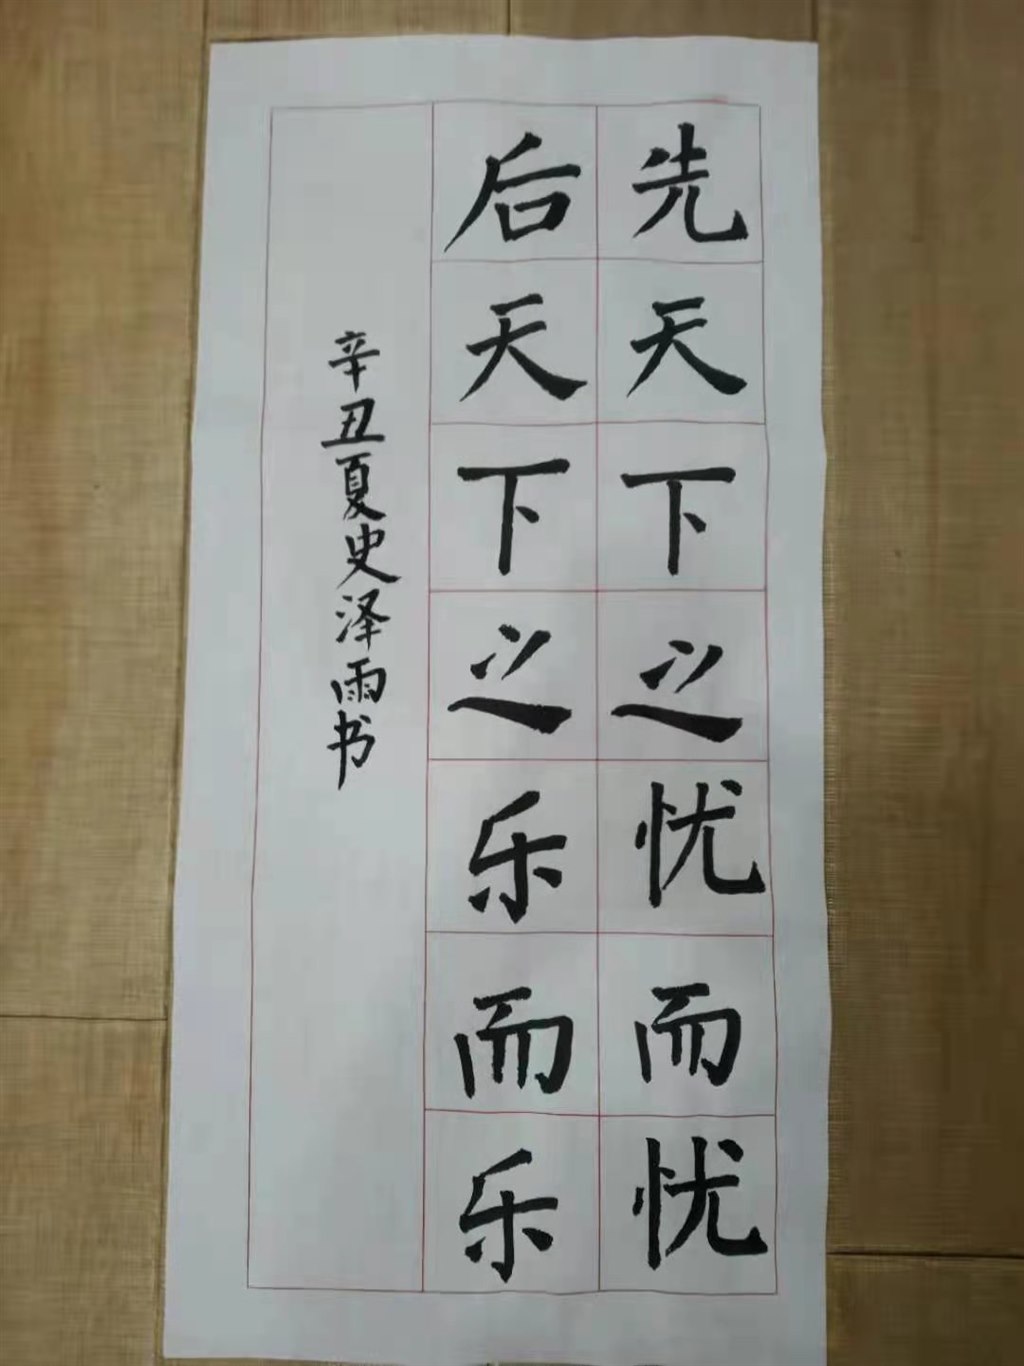 先天下之忧而忧
后天下之乐而乐
辛丑夏史泽雨书